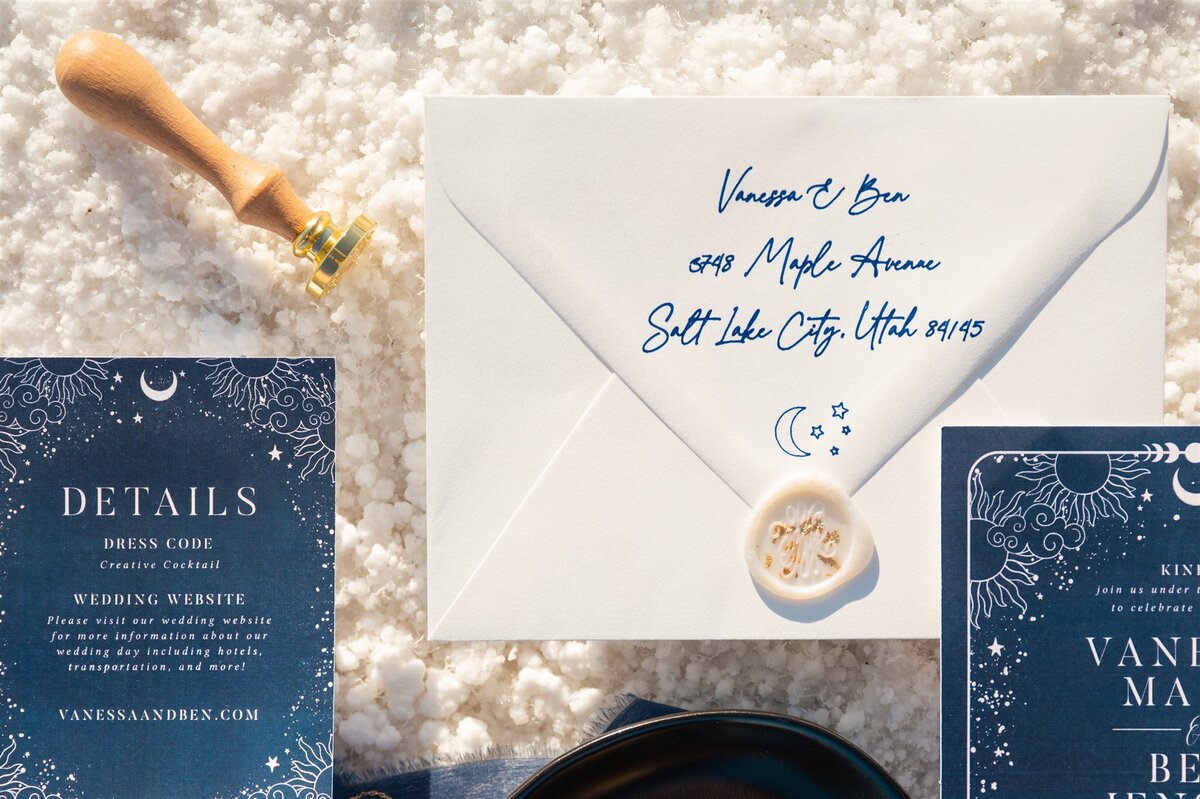 Vanessa & Ben
3748 Maple Avenue
Salt Lake City, Utah 84145
DETAILS
DRESS CODE
Creative Cocktail
WEDDING WEBSITE
Please visit our wedding website
for more information about our
wedding day including hotels,
transportation, and more!
VANESSAANDBEN.COM
join us under
to celebrate